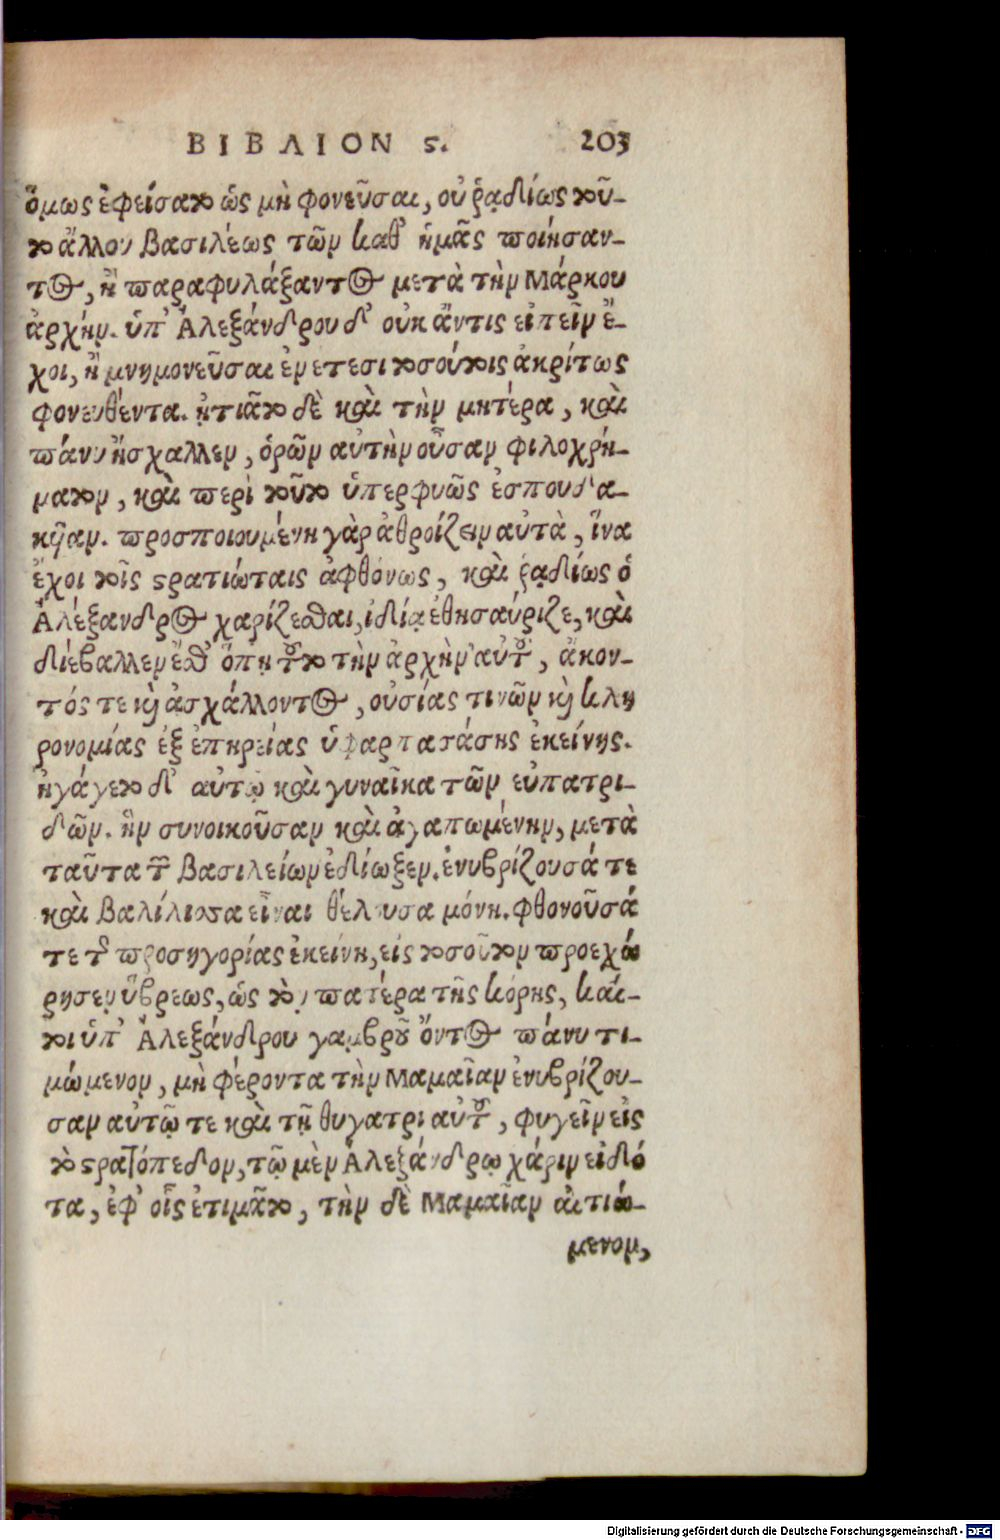 ΒΙΒΛΙΟΝ ϛ. 203
ὅμως ἐφείσατο ὡς μὴ φονεῦσαι, οὐ ῥᾳδίως τοῦ-
το ἄλλου βασιλέως τῶν καθ' ἡμᾶς ποιήσαν-
τος, ἢ παραφυλάξαντος μετὰ τὴν Μάρκου
ἀρχήν. ὑπ' Ἀλεξάνδρου δ' οὐκ ἄν τις εἰπεῖν ἔ-
χοι, ἢ μνημονεῦσαι ἐν ἔτεσι τοσούτοις ἀκρίτως
φονευθέντα. ᾐτιᾶτο δὲ καὶ τὴν μητέρα, καὶ
πάνυ ἤσχαλλεν, ὁρῶν αὐτὴν οὖσαν φιλοχρή-
ματον, καὶ περὶ τοῦτο ὑπερφυῶς ἐσπουδα-
κῆαν. προσποιουμένη γὰρ ἀθροίζειν αὐτὰ, ἵνα
ἔχοι τοῖς στρατιώταις ἀφθόνως, καὶ ῥᾳδίως ὁ
Ἀλέξανδρος χαρίζεσθαι, ἰδίᾳ ἐθησαύριζε, καὶ
διέβαλλεν ἔσθ' ὅπῃ τοῦτο τὴν ἀρχὴν αὐτοῦ, ἄκον-
τός τε καὶ ἀσχάλλοντος, οὐσίας τινῶν καὶ κλη
ρονομίας ἐξ ἐπηρείας ὑφαρπασάσης ἐκείνης.
ἠγάγετο δ' αὐτῷ καὶ γυναῖκα τῶν εὐπατρι-
δῶν. ἣν συνοικοῦσαν καὶ ἀγαπωμένην, μετὰ
ταῦτα τῶν βασιλείων ἐδίωξεν. ἐνυβρίζουσά τε
καὶ βαλίλιοσα εἶναι θέλουσα μόνη. φθονοῦσά
τε τῆς προσηγορίας ἐκείνη, εἰς τοσοῦτον προεχώ
ρησεν ὕβρεως, ὡς τὸν πατέρα τῆς κόρης, καί-
τοι ὑπ' Ἀλεξάνδρου γαμβροῦ ὄντος πάνυ τι-
μώμενον, μὴ φέροντα τὴν Μαμαῖαν ἐνυβρίζου-
σαν αὐτῷ τε καὶ τῇ θυγατρὶ αὐτοῦ, φυγεῖν εἰς
τὸ στρατόπεδον, τῷ μὲν Ἀλεξάνδρῳ χάριν εἰδό
τα, ἐφ' οἷς ἐτιμᾶτο, τὴν δὲ Μαμαῖαν αἰτιώ-
μενον,
Digitalisierung gefördert durch die Deutsche Forschungsgemeinschaft - DFG